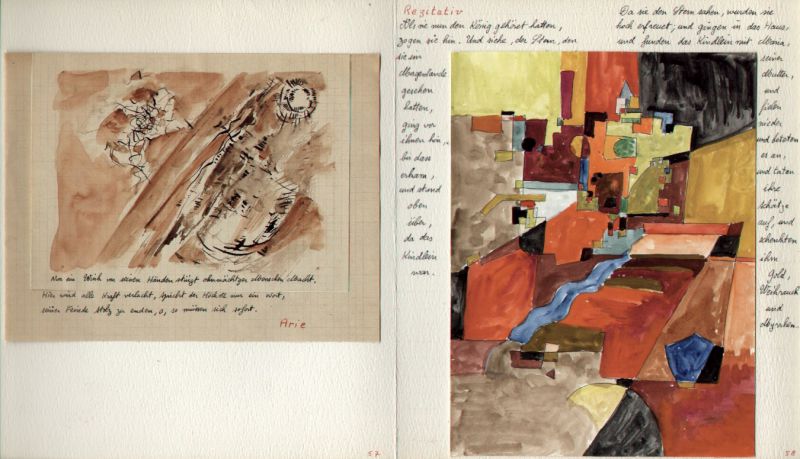 Nur ein Wink von seinen Händen stürzt ohnmächtger Menschen Macht.
Hier wird alle Kraft verlacht, spricht der Höchste nur ein Wort,
seiner Feinde Stolz zu enden, o, so müssen sich sofort.
Arie
57
Rezitativ
Als sie nun den König gehöret hatten,
zogen sie hin. Und siehe, der Stern, den
sie im
Morgenlande
gesehen
hatten,
ging vor
ihnen hin,
bis dass
er kam,
und stand
oben
über,
da das
Kindlein
war.
Da sie den Stern sahen, wurden sie
hoch erfreuet; und gingen in das Haus,
und funden das Kindlein mit Maria,
seiner
Mutter,
und
fielen
nieder
und beteten
es an,
und taten
ihre
Schätze
auf, und
schenkten
ihm
Gold,
Weihrauch
und
Myrrhen.
58